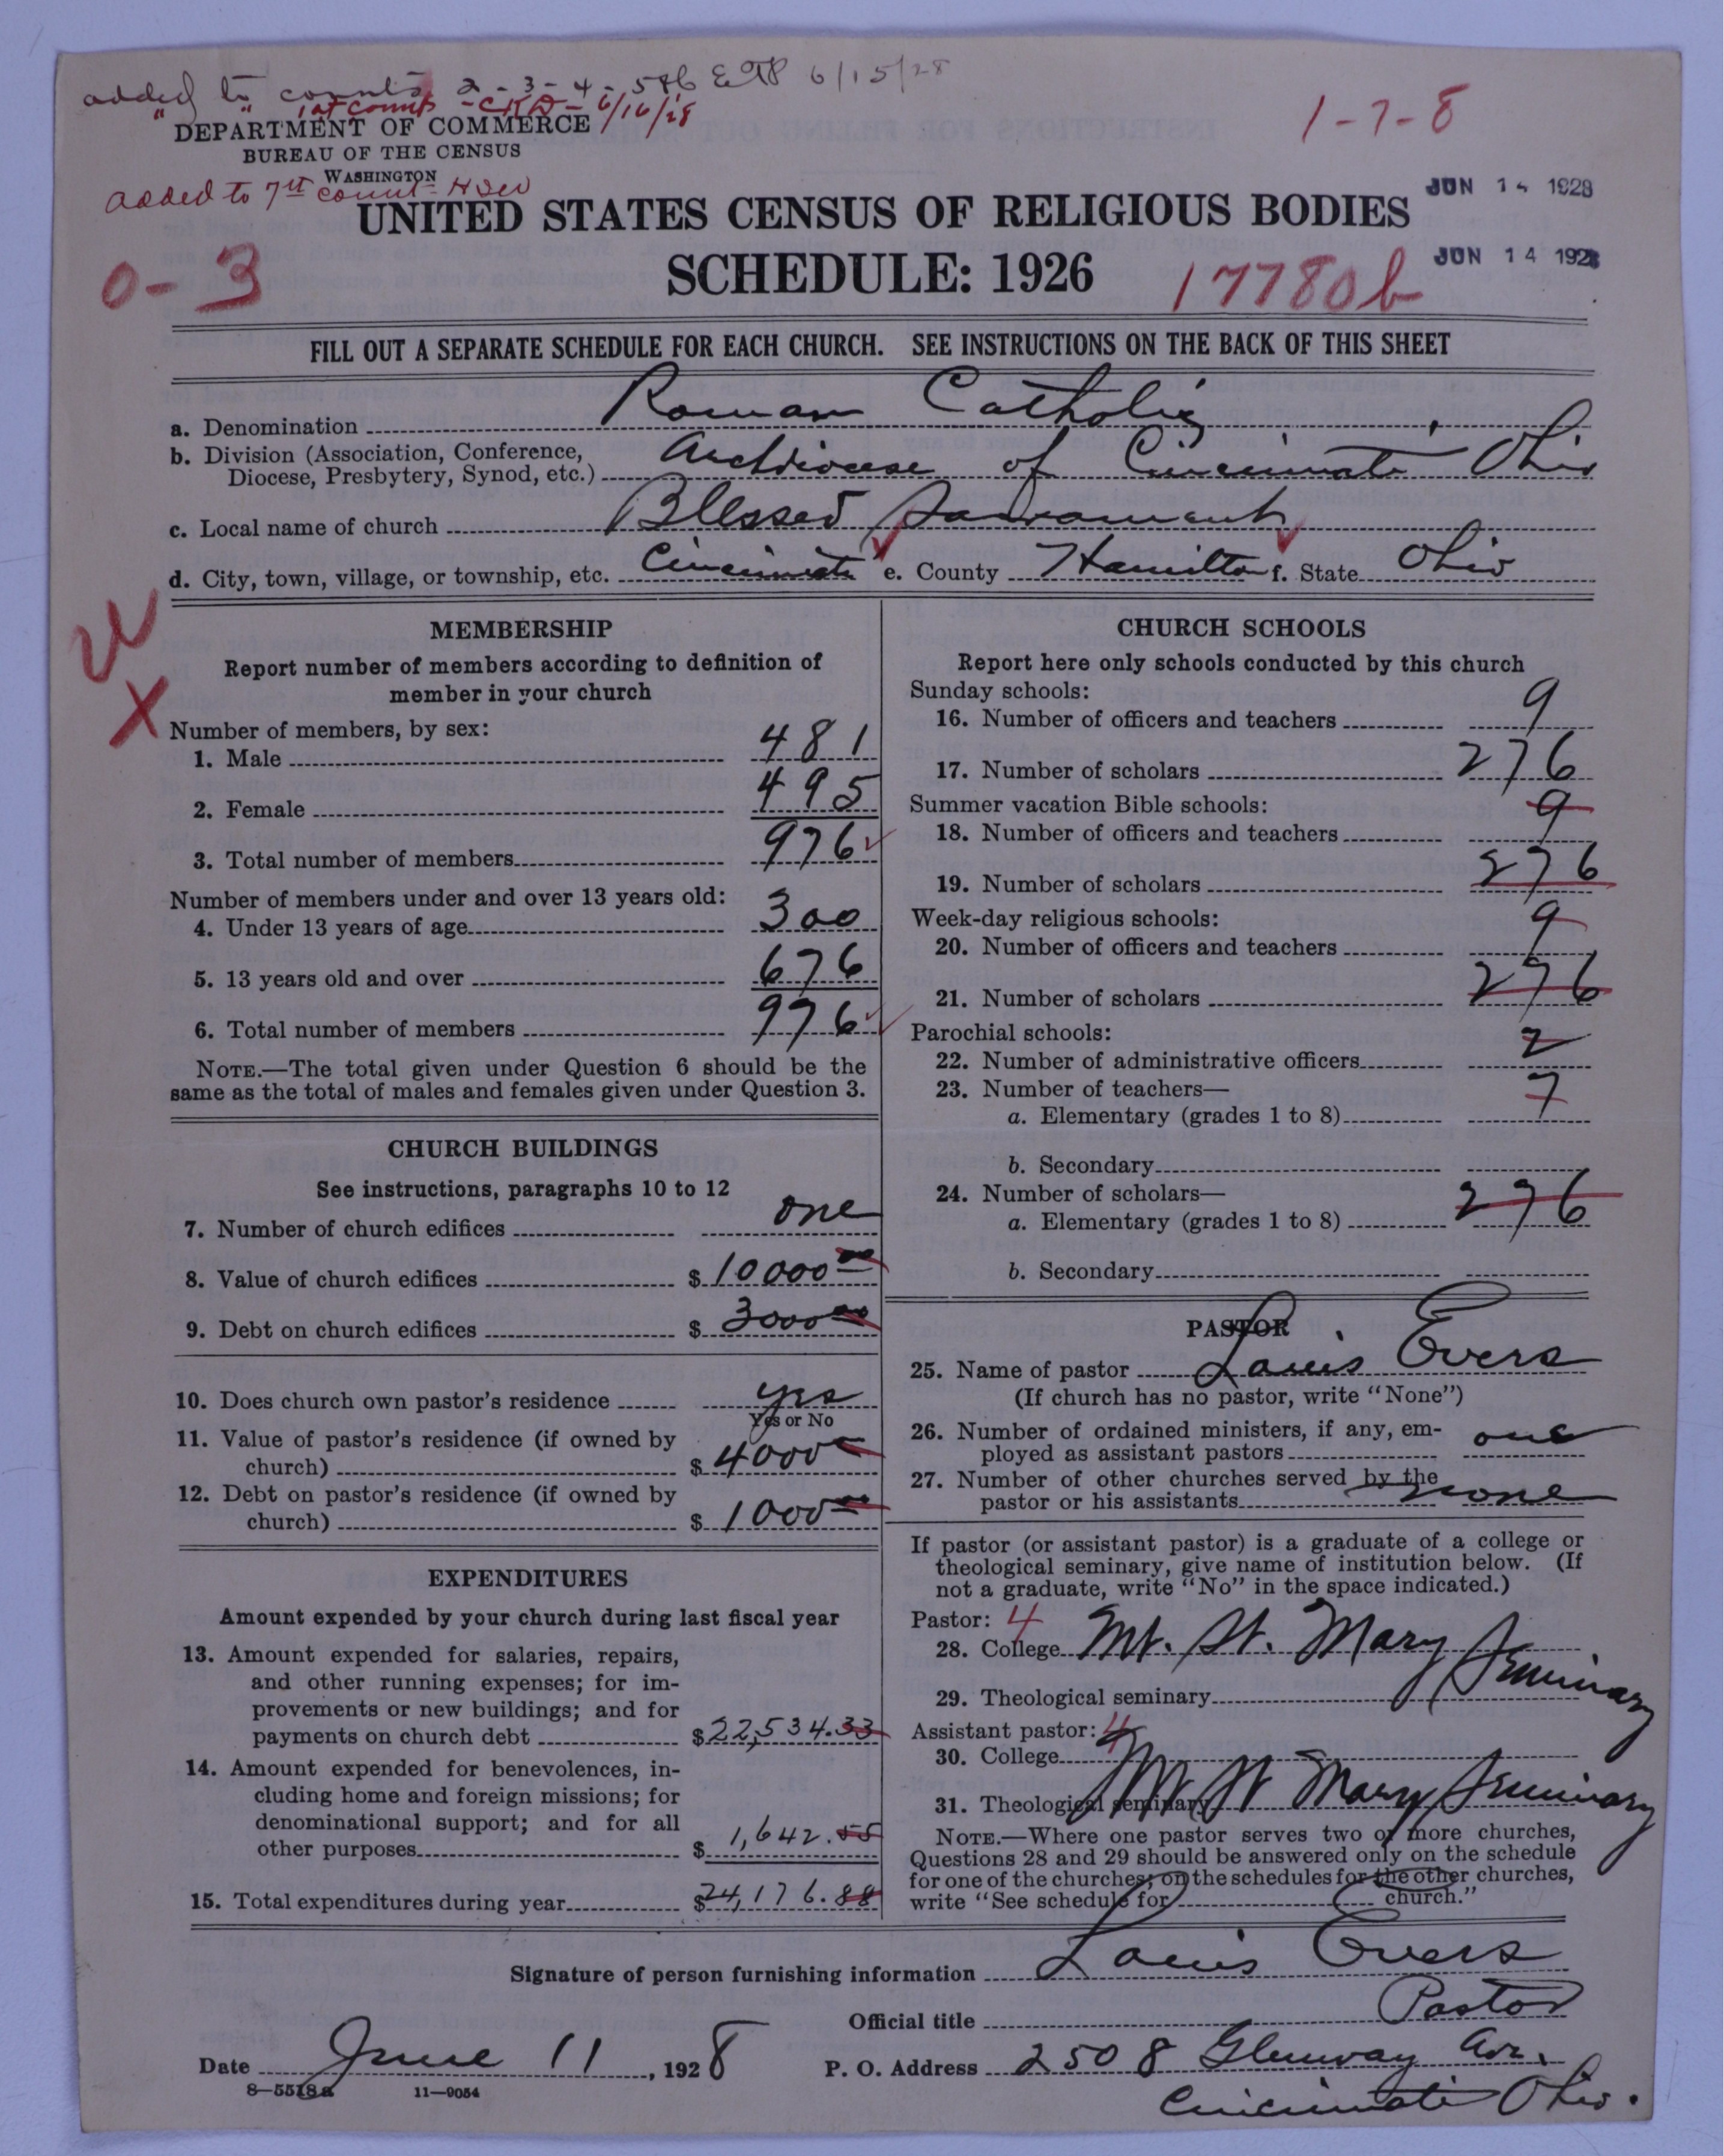 added to counts 2-3-4-5+6 EAP 6/15/28
" " 1st counts -CKD- 6/16/28
DEPARTMENT OF COMMERCE
BUREAU OF THE CENSUS
WASHINGTON
1-7-8
added to 7th count-
JUN 14 1928
UNITED STATES CENSUS OF RELIGIOUS BODIES
JUN 14 1928
SCHEDULE: 1926
0-3
17780b
FILL OUT A SEPARATE SCHEDULE FOR EACH CHURCH. SEE INSTRUCTIONS ON THE BACK OF THIS SHEET
a. Denomination Roman Catholic
b. Division (Association, Conference, Diocese, Presbytery, Synod, etc.) Archdiocese of Cincinnati Ohio
c. Local name of church Blessed Sacrament
d. City, town, village, or township, etc. Cincinnati e. County Hamilton f. State Ohio
X
MEMBERSHIP
Report number of members according to definition of
member in your church
Number of members, by sex:
1. Male 481
2. Female 495
3. Total number of members 976
Number of members under and over 13 years old:
4. Under 13 years of age 300
5. 13 years old and over 676
6. Total number of members 976
NOTE.—The total given under Question 6 should be the
same as the total of males and females given under Question 3.
CHURCH BUILDINGS
See instructions, paragraphs 10 to 12
7. Number of church edifices one
8. Value of church edifices $ 10000 00
9. Debt on church edifices $ 3000 00
10. Does church own pastor's residence yes
Yes or No
11. Value of pastor's residence (if owned by
church) $ 4000
12. Debt on pastor's residence (if owned by
church) $ 1000
EXPENDITURES
Amount expended by your church during last fiscal year
13. Amount expended for salaries, repairs,
and other running expenses; for im-
provements or new buildings; and for
payments on church debt $ 22,534.33
14. Amount expended for benevolences, in-
cluding home and foreign missions; for
denominational support; and for all
other purposes $ 1,642.55
15. Total expenditures during year $ 24,176.88
CHURCH SCHOOLS
Report here only schools conducted by this church
Sunday schools:
16. Number of officers and teachers 9
17. Number of scholars 276
Summer vacation Bible schools:
18. Number of officers and teachers 9
19. Number of scholars 276
Week-day religious schools:
20. Number of officers and teachers 9
21. Number of scholars 276
Parochial schools:
22. Number of administrative officers 2
23. Number of teachers—
a. Elementary (grades 1 to 8) 7
b. Secondary
24. Number of scholars—
a. Elementary (grades 1 to 8) 276
b. Secondary
PASTOR
25. Name of pastor Louis Evers
(If church has no pastor, write "None")
26. Number of ordained ministers, if any, em-
ployed as assistant pastors one
27. Number of other churches served by the
pastor or his assistants none
If pastor (or assistant pastor) is a graduate of a college or
theological seminary, give name of institution below. (If
not a graduate, write "No" in the space indicated.)
Pastor: 4
28. College Mt. St. Mary Seminary
29. Theological seminary
Assistant pastor: 4
30. College
31. Theological seminary Mt St Mary Seminary
NOTE.—Where one pastor serves two or more churches,
Questions 28 and 29 should be answered only on the schedule
for one of the churches; on the schedules for the other churches,
write "See schedule for church."
Signature of person furnishing information Louis Evers
Official title Pastor
Date June 11, 1928 P. O. Address 2508 Glenway Av.
Cincinnati Ohio.
8-5518a 11-9054